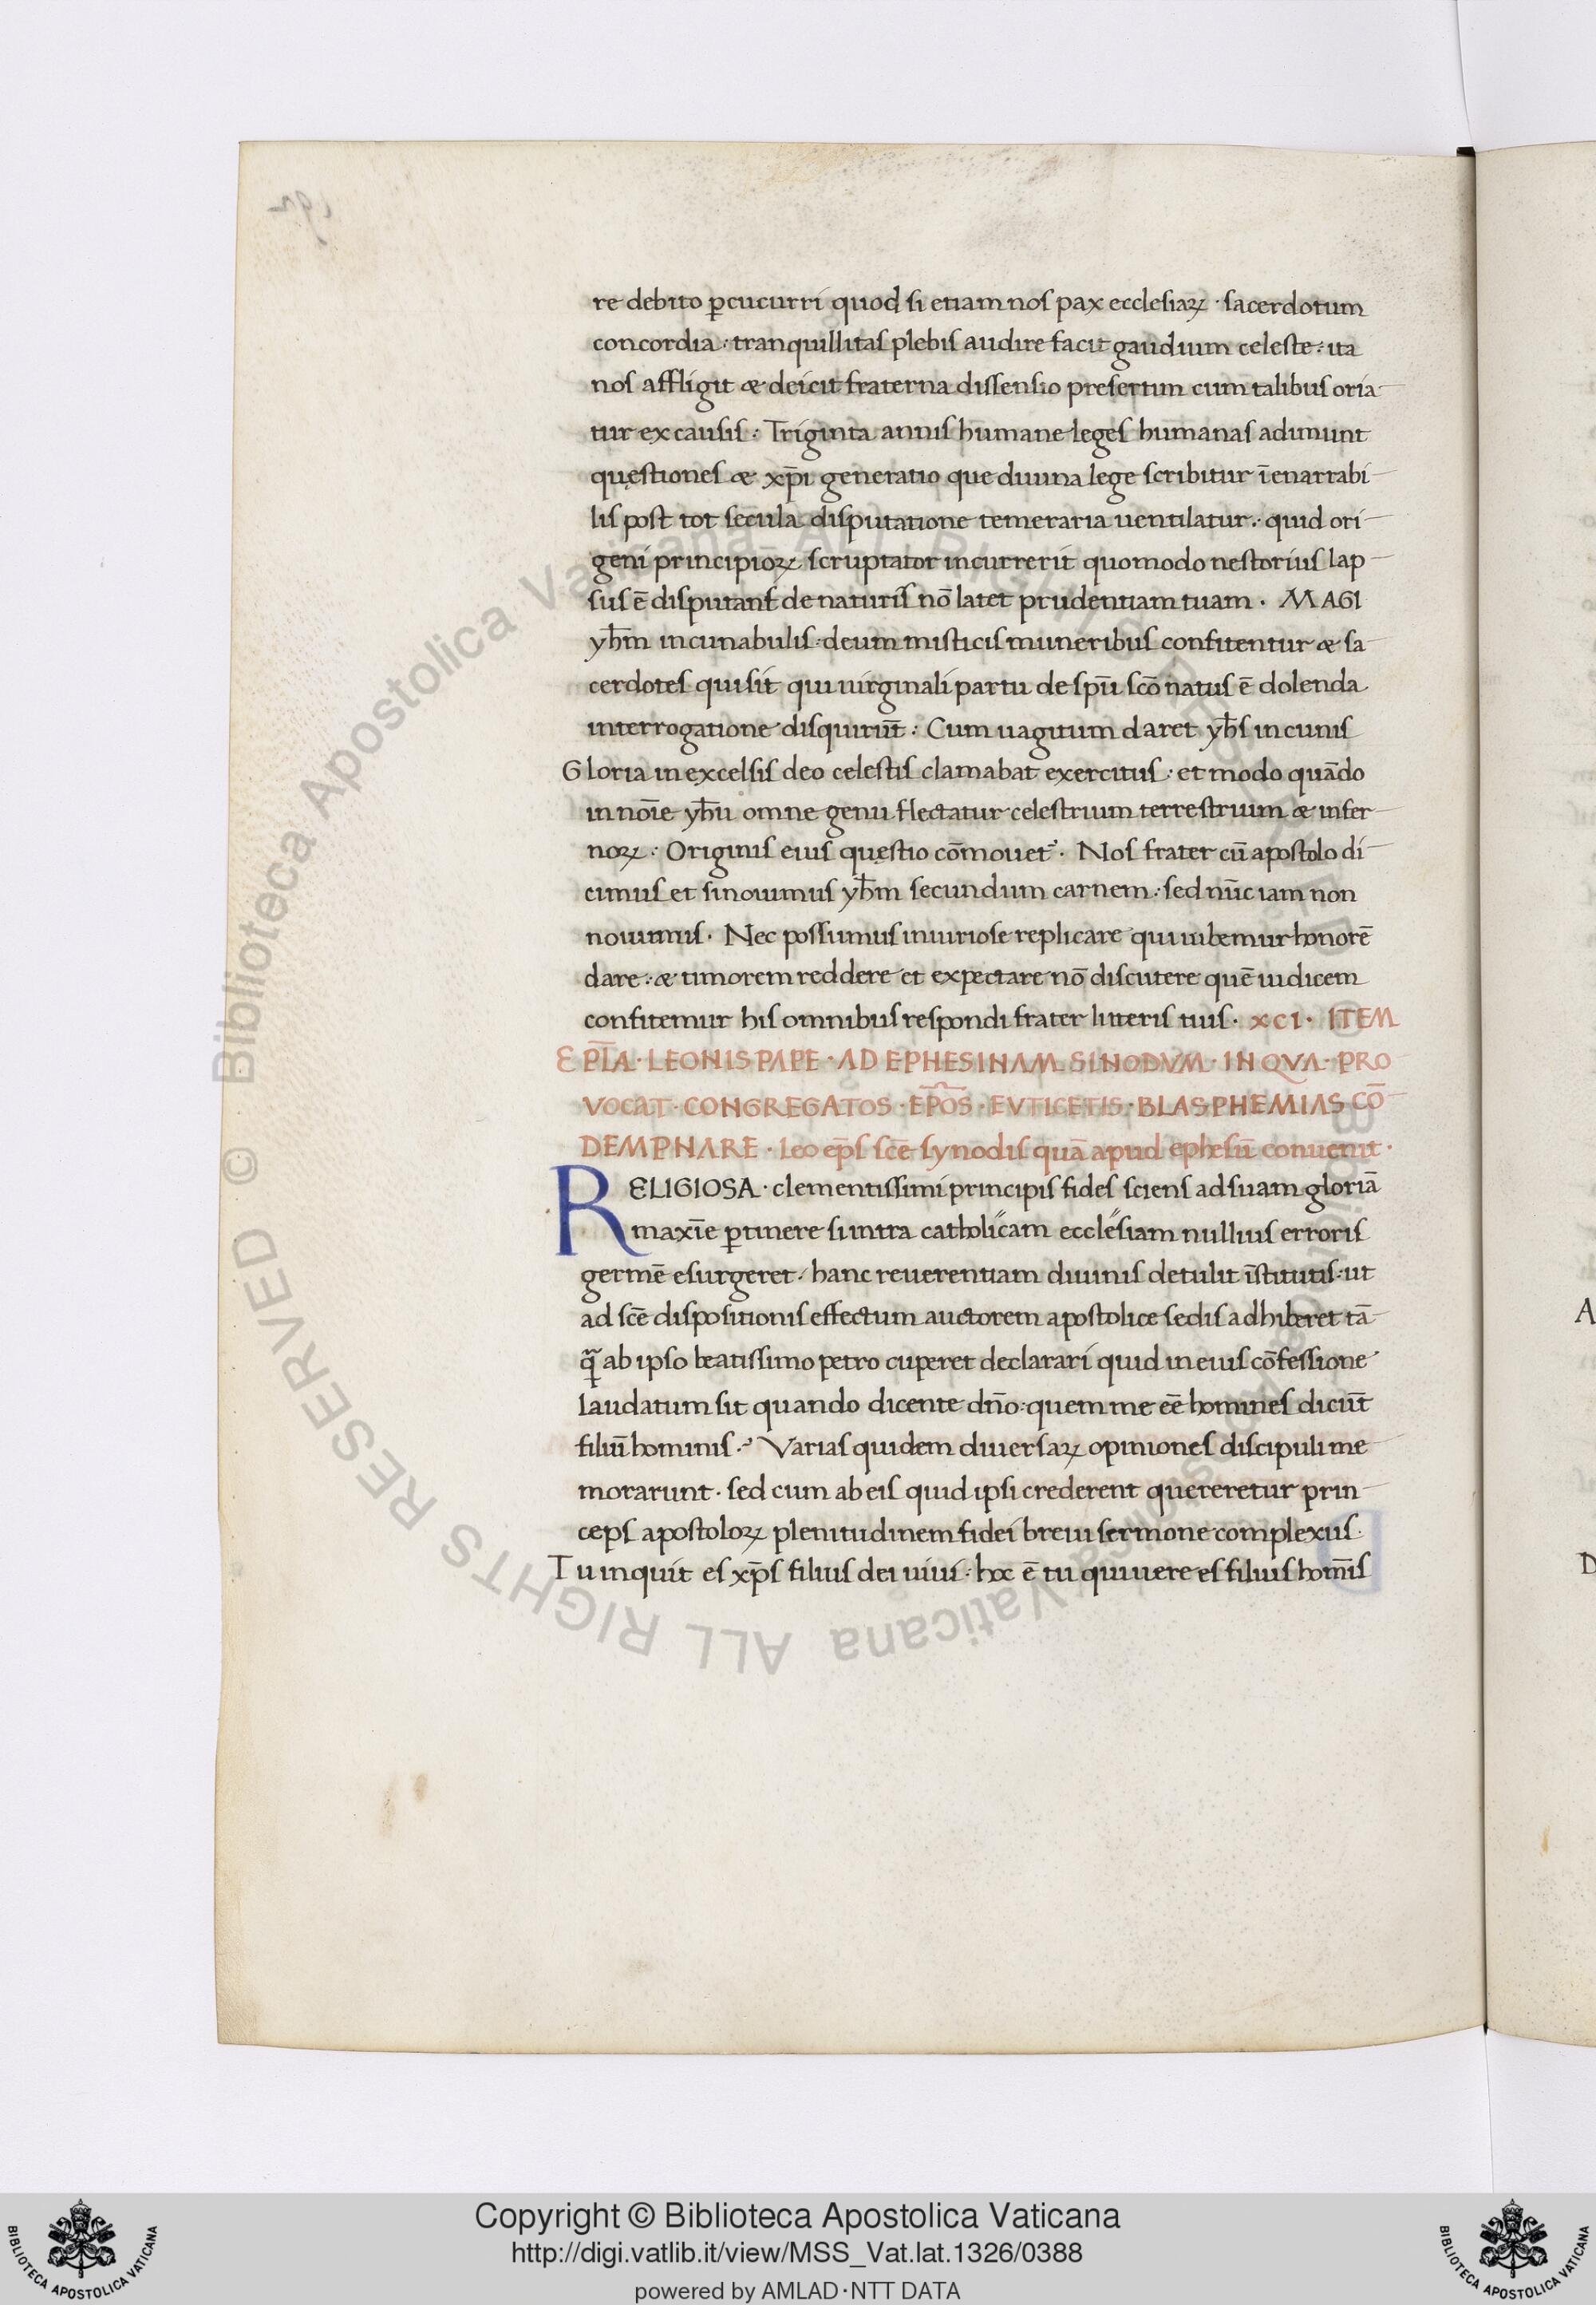 re debito ꝑcucurri quod si etiam nos pax ecclesiaꝝ · sacerdotum
concordia : tranquillitas plebis audire facit gaudium celeste : ita
nos affligit æ deicit fraterna dissensio presertim cum talibus oria-
tur ex causis : Triginta annis humane leges humanas adimunt
quęstiones æ xp̄i generatio que diuina lege scribitur īenarrabi-
lis post tot secula disputatione temeraria uentilatur : quid ori-
geni principioꝝ scruptator incurrerit quomodo nestorius lap-
sus ē disputans de naturis nō latet prudentiam tuam · MAGI
yh̄m incunabulis : deum misticis muneribus confitentur æ sa-
cerdotes qui sit qui uirginali partu de sp̄u sc̄o natus ē dolenda
interrogatione disquirūt : Cum uagitum daret yh̄s in cunis
Gloria in excelsis deo celestis clamabat exercitus : et modo quādo
in noīe yh̄u omne genu flectatur celestrium terrestrium æ infer-
noꝝ : Originis eius quęstio cōmouet᾽ · Nos frater cū apostolo di-
cimus et si nouimus yh̄m secundum carnem : sed nūc iam non
nouimus · Nec possumus iniuriose replicare qui iubemur honorē
dare : æ timorem reddere et expectare nō discutere quē iudicem
confitemur his omnibus respondi frater litteris tuis · XCI · ITEM
EPL̄A · LEONIS PAPE · AD EPHESINAM SINODVM · IN QVA · PRO-
VOCAT · CONGREGATOS · EP̄OS · EVTICETIS · BLASPHEMIAS CŌ-
DEMPNARE · Leo ep̄s sc̄e synodis quā apud ephesū conuenit ·
RELIGIOSA · clementissimi principis fides sciens ad suam gloriā
maxīe ꝑtinere si intra catholicam ecclesiam nullius erroris
germē esurgeret · hanc reuerentiam diuinis detulit īstitutis · ut
ad sc̄e dispositionis effectum auctorem apostolice sedis adhiberet tā-
q̄ ab ipso beatissimo petro cuperet declarari quid in eius cōfessione
laudatum sit quando dicente dn̄o : quem me eē homines dicūt
filiū hominis · Varias quidem diuersaꝝ opiniones discipuli me-
morarunt · sed cum ab eis quid ipsi crederent quereretur prin-
ceps apostoloꝝ plenitudinem fidei breui sermone complexus ·
Tu inquit es xp̄s filius dei uiui : hoc ē tu qui uere es filius hom̄is
Copyright © Biblioteca Apostolica Vaticana
http://digi.vatlib.it/view/MSS_Vat.lat.1326/0388
powered by AMLAD·NTT DATA
BIBLIOTECA APOSTOLICA VATICANA
BIBLIOTECA APOSTOLICA VATICANA
© Biblioteca Apostolica Vaticana ALL RIGHTS RESERVED